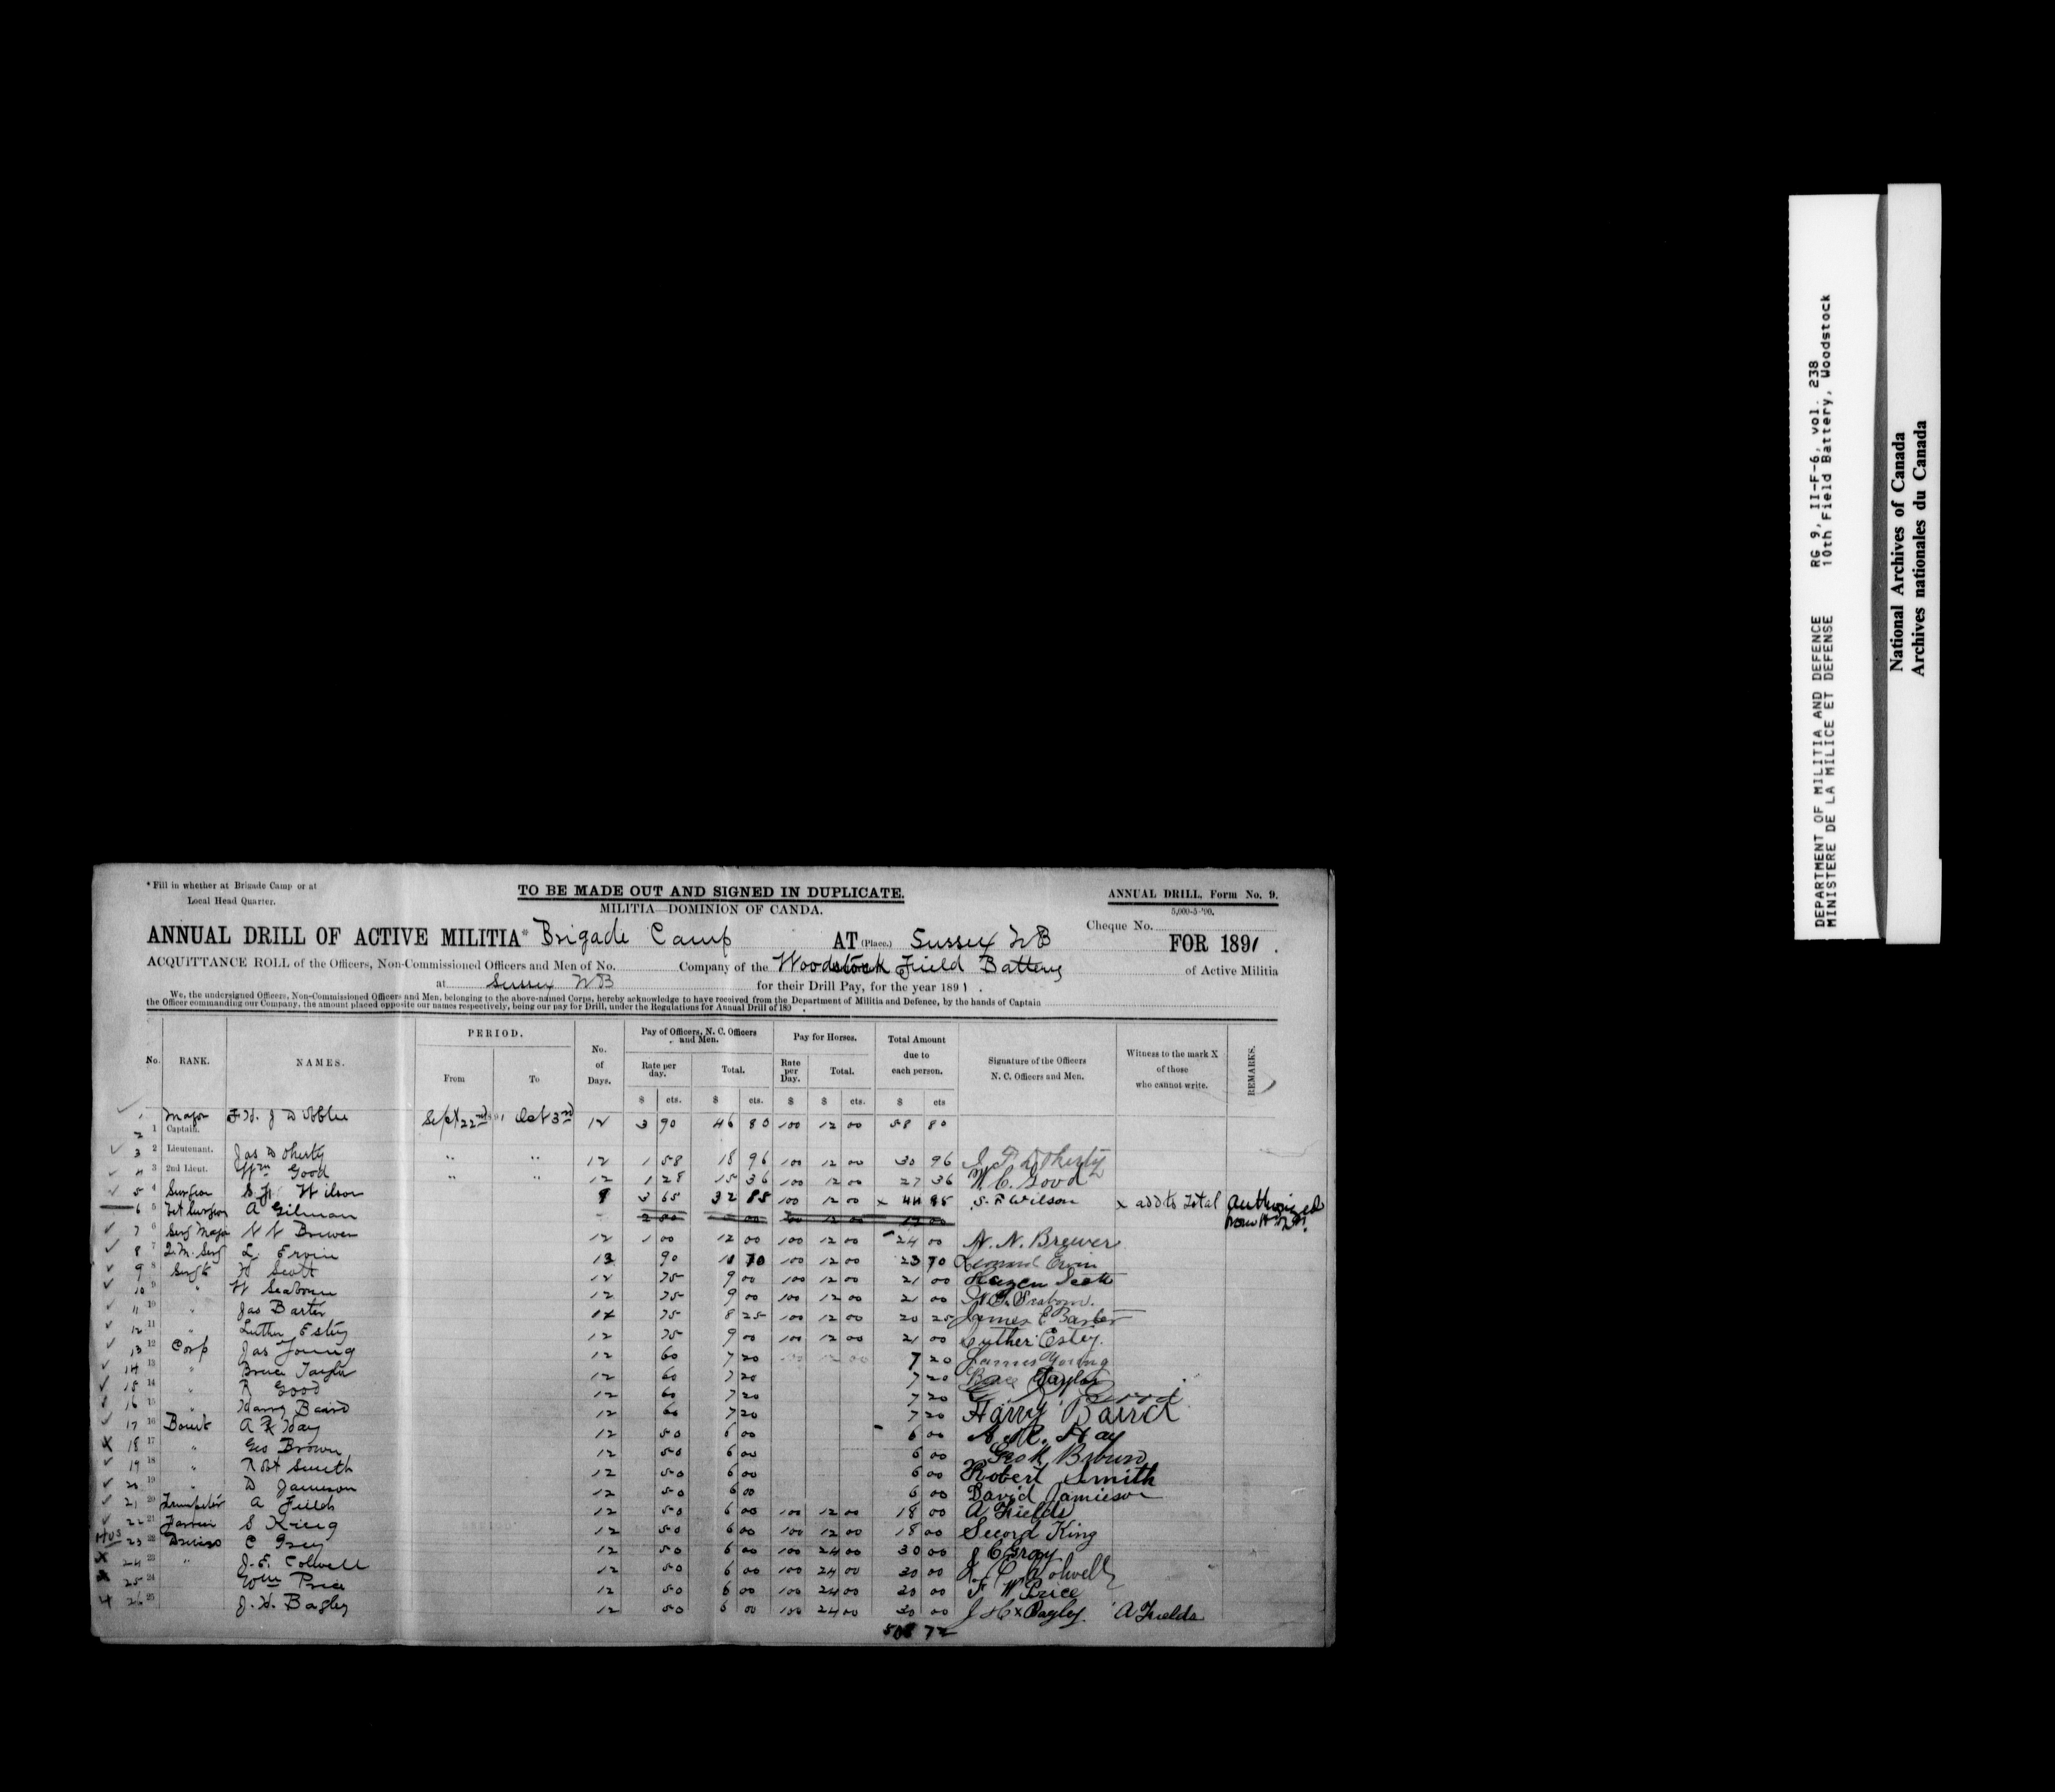 * Fill in whether at Brigade Camp or at
Local Head Quarter.
TO BE MADE OUT AND SIGNED IN DUPLICATE.
MILITIA—DOMINION OF CANDA.
ANNUAL DRILL, Form No. 9.
5,000-5-'90.
Cheque No.
ANNUAL DRILL OF ACTIVE MILITIA* Brigade Camp AT (Place.) Sussex NB FOR 1891.
ACQUITTANCE ROLL of the Officers, Non-Commissioned Officers and Men of No. Company of the Woodstock Field Battery of Active Militia
at Sussex NB for their Drill Pay, for the year 1891.
We, the undersigned Officers, Non-Commissioned Officers and Men, belonging to the above-named Corps, hereby acknowledge to have received from the Department of Militia and Defence, by the hands of Captain
the Officer commanding our Company, the amount placed opposite our names respectively, being our pay for Drill, under the Regulations for Annual Drill of 189 .
No. RANK. NAMES. PERIOD. From To No. of Days. Pay of Officers, N. C. Officers and Men. Rate per day. Total. Pay for Horses. Rate per Day. Total. Total Amount due to each person. Signature of the Officers N. C. Officers and Men. Witness to the mark X of those who cannot write. REMARKS.
$ cts. $ cts. $ $ cts. $ cts
1 Major Sept 22nd Oct 3rd 12 3 90 46 80 100 12 00 58 80
2 1 Captain.
3 2 Lieutenant. Jas Doherty " " 12 1 58 18 96 100 12 00 30 96
4 3 2nd Lieut. Wm Good " " 12 1 28 15 36 100 12 00 27 36 W. C. Good
5 4 Surgeon Wilson 9 3 65 32 85 100 12 00 x 44 85 S. F. Wilson x add to total Authorized
6 5 Vet Surgeon A Gilman
7 6 Serg Major N N Brewer 12 1 00 12 00 100 12 00 24 00 N. N. Brewer
8 7 Q. M. Serg L. Ervin 13 90 11 70 100 12 00 23 70 Ervin
9 8 Sergt H Scott 12 75 9 00 100 12 00 21 00 Hazen Scott
10 9 " W Seaborn 12 75 9 00 100 12 00 21 00
11 10 " Jas Barter 75 8 25 100 12 00 20 25 James E Barter
12 11 " Luther Estey 12 75 9 00 100 12 00 21 00 Luther Estey.
13 12 Corp Jas Young 12 60 7 20 12 00 7 20 James Young
14 13 " Bruce Taylor 12 60 7 20 7 20 Taylor
15 14 " R Good 12 60 7 20 7 20
16 15 " Harry Baird 12 60 7 20 7 20 Harry Baird
17 16 Bomb A R Hay 12 50 6 00 6 00 A. R. Hay
18 17 " Geo Brown 12 50 6 00 6 00 Geo H Brown
19 18 " Robt Smith 12 50 6 00 6 00 Robert Smith
20 19 D Jamieson 12 50 6 00 6 00 David Jamieson
21 20 Trumpeter A Fields 12 50 6 00 100 12 00 18 00 A Fields
22 21 Farrier S King 12 50 6 00 100 12 00 18 00 Secord King
23 22 Drivers C Gray 12 50 6 00 100 24 00 30 00 J C Gray
24 23 " J. E. Colwell 12 50 6 00 100 24 00 30 00 Colwell
25 24 Wm Price 12 50 6 00 100 24 00 30 00 F W Price
26 25 J. H. Bagley 12 50 6 00 100 24 00 30 00 J H x Bagley. A Fields
508 72
DEPARTMENT OF MILITIA AND DEFENCE RG 9, II-F-6, vol. 238
MINISTERE DE LA MILICE ET DEFENSE 10th Field Battery, Woodstock
National Archives of Canada
Archives nationales du Canada